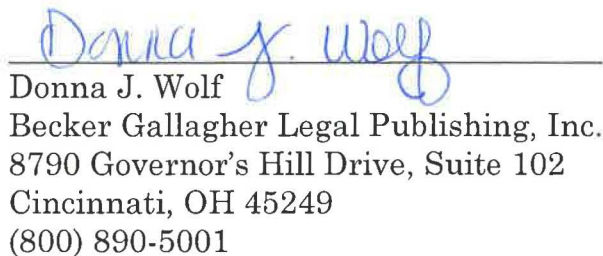 Donna J. Wolf
Donna J. Wolf
Becker Gallagher Legal Publishing, Inc.
8790 Governor's Hill Drive, Suite 102
Cincinnati, OH 45249
(800) 890-5001